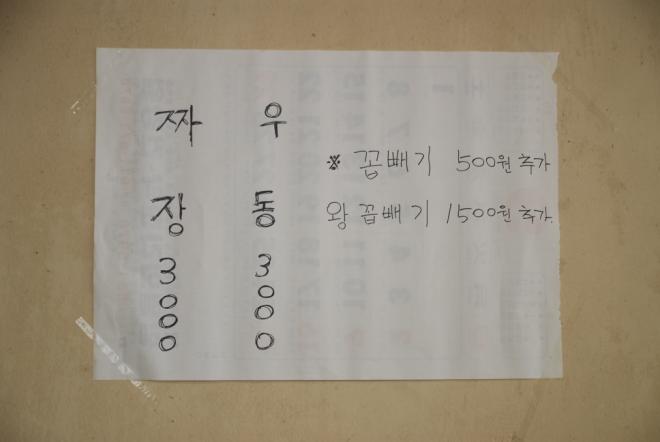 짜장 3000
우동 3000
※ 꼽빼기 500원 추가
왕 꼽빼기 1500원 추가.